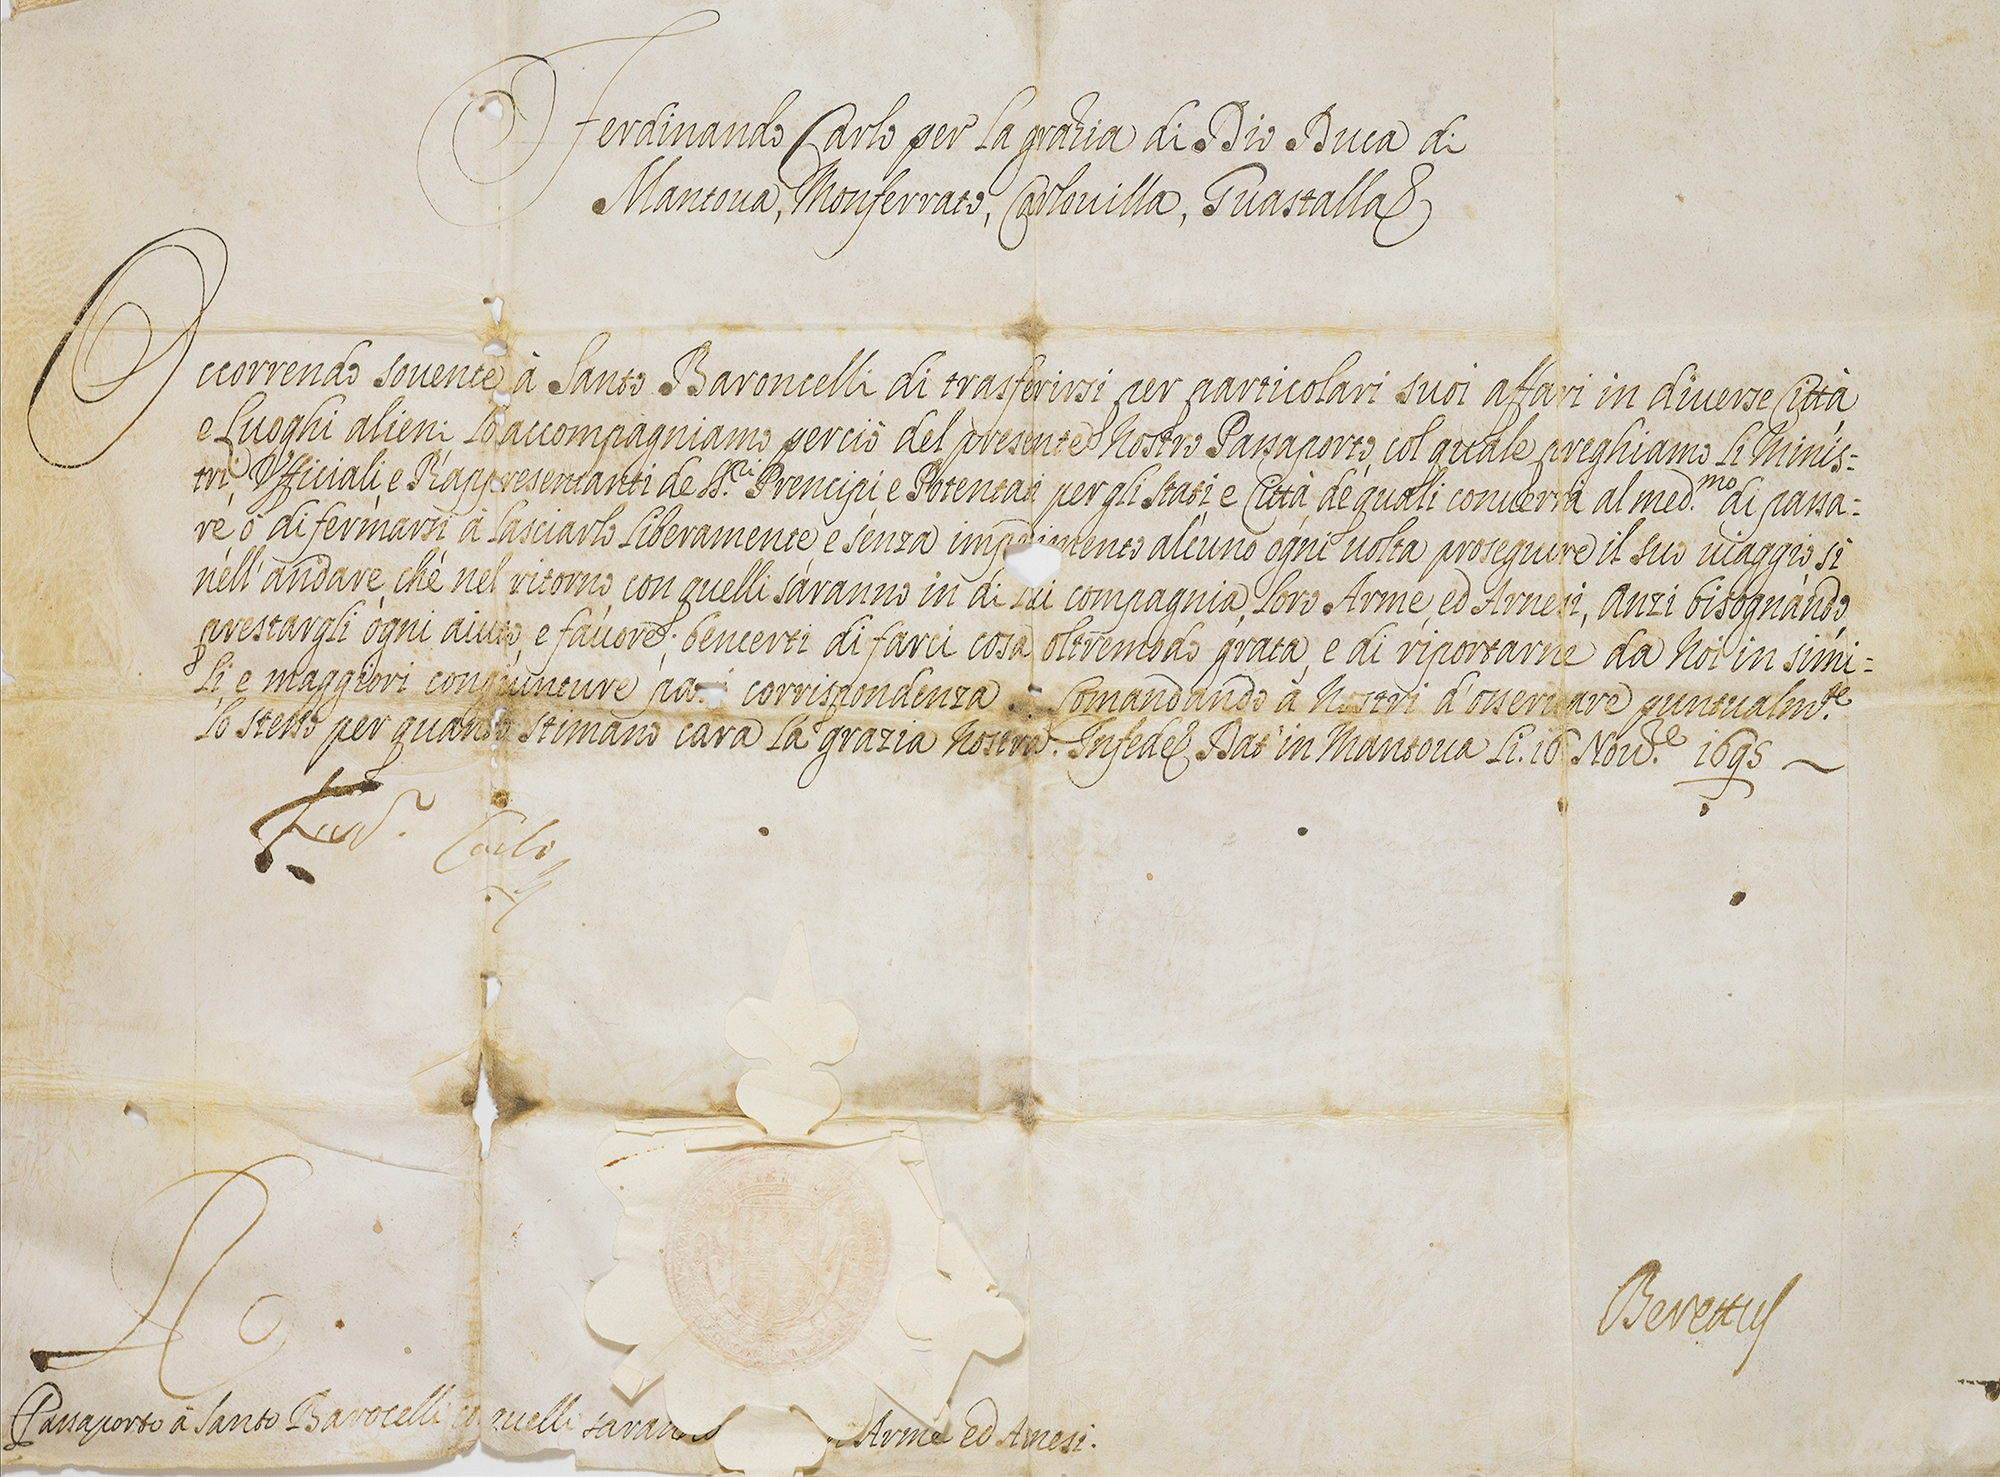 Ferdinando Carlo per la grazia di Dio Duca di
Mantoua, Monferrato, Carlouilla, Guastalla &
Occorrendo souente à Santo Baroncelli di trasferirsi per particolari suoi affari in diuerse Città
e Luoghi alieni lo accompagniamo perciò del presente Nostro Passaporto, col quale preghiamo li Minis=
tri, Vfficiali, e Rappresentanti de SS.ri Prencipi e Potentati per gli stati e Città de quali conuerrà al med.mo di passa=
re ò di fermarsi à lasciarlo liberamente e senza impedimento alcuno ogni uolta proseguire il suo uiaggio sì
nell' andare, che nel ritorno con quelli saranno in di lui compagnia, loro Arme, ed Arnesi, Anzi bisognando
prestargli ogni aiuto, e fauore; bencerti di farci cosa oltremodo grata, e di riportarne da Noi in simi=
li e maggiori congiunture pari corrispondenza Comandando à Nostri d'osseruare puntualm.te
lo stesso per quanto stimano cara la grazia Nostra. Infede & Dat' in Mantoua li. 16 Nou.e 1695
Ferd. Carlo
Berettus
Passaporto à Santo Barocelli quelli saranno Arme ed Arnesi.